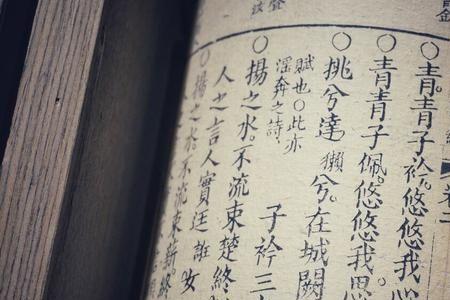 ○青。青子衿。悠悠我
○青青子佩。悠悠我思
○挑兮達獺兮。在城闕
賦也○此亦
淫奔之詩
子衿三
○揚之水。不流束楚終
人之言人實廷誑女
○揚之水。不流束薪